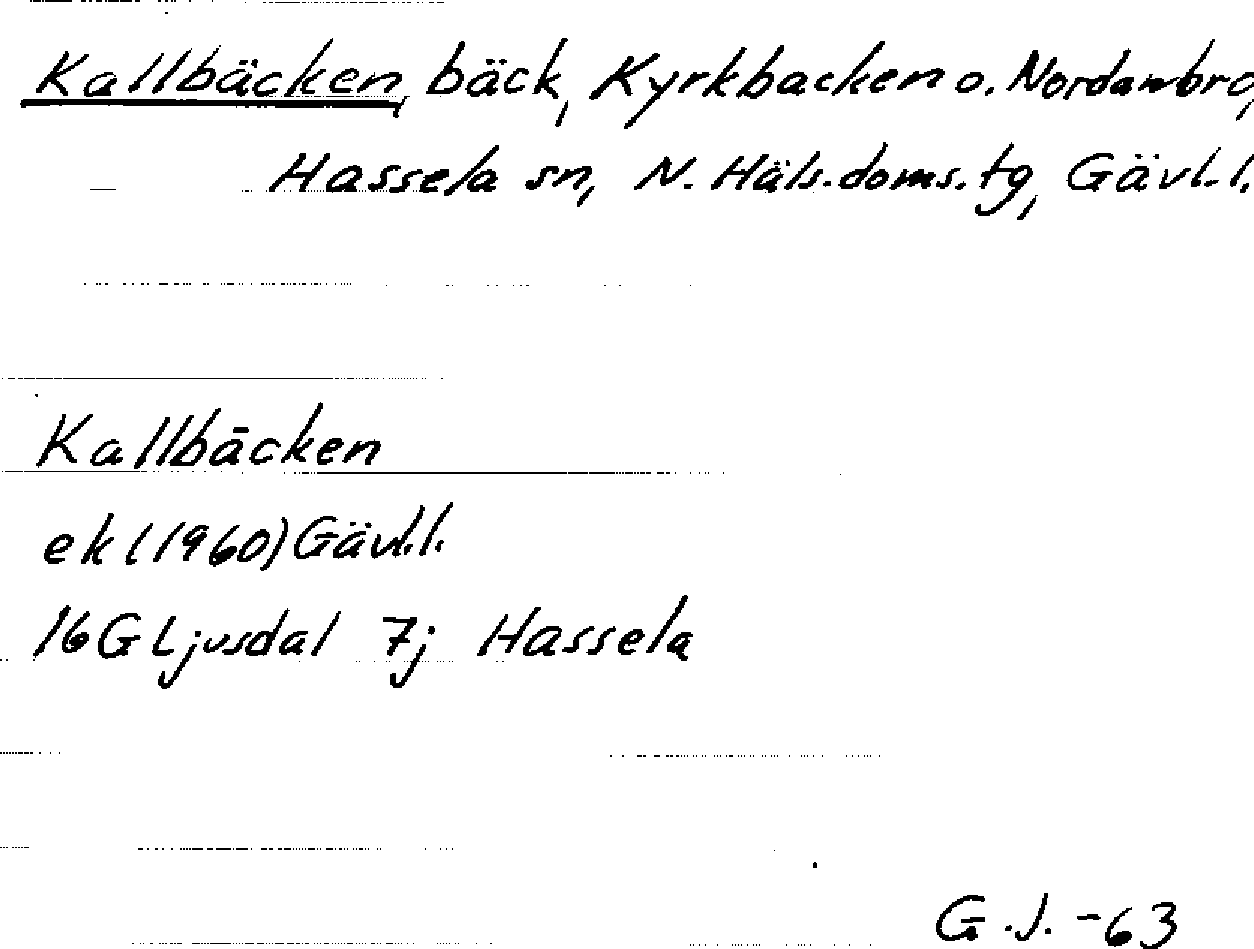 Kallbäcken, bäck, Kyrkbacken o. Nordanbro,
Hassela sn, N. Häls.doms.tg, Gävl.l.
Kallbäcken
ek (1960) Gävl.l.
16G Ljusdal 7j Hassela
G.J. -63